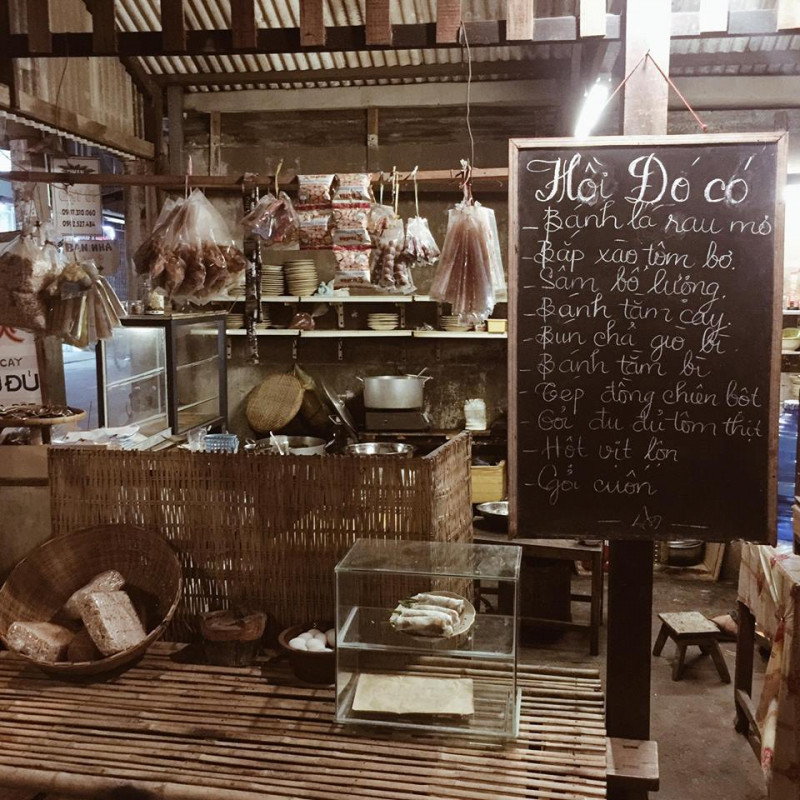 Hồi Đó có
- Bánh lá rau mơ
- Bắp xào tôm bơ.
- Sâm bổ lượng.
- Bánh tằm cay.
- Bún chả giò bì
- Bánh tằm bì
- Tép đồng chiên bột
- Gỏi đu đủ tôm thịt
- Hột vịt lộn
- Gỏi cuốn
0917.210.060
BÁN NHÀ
CAY
ĐỦ